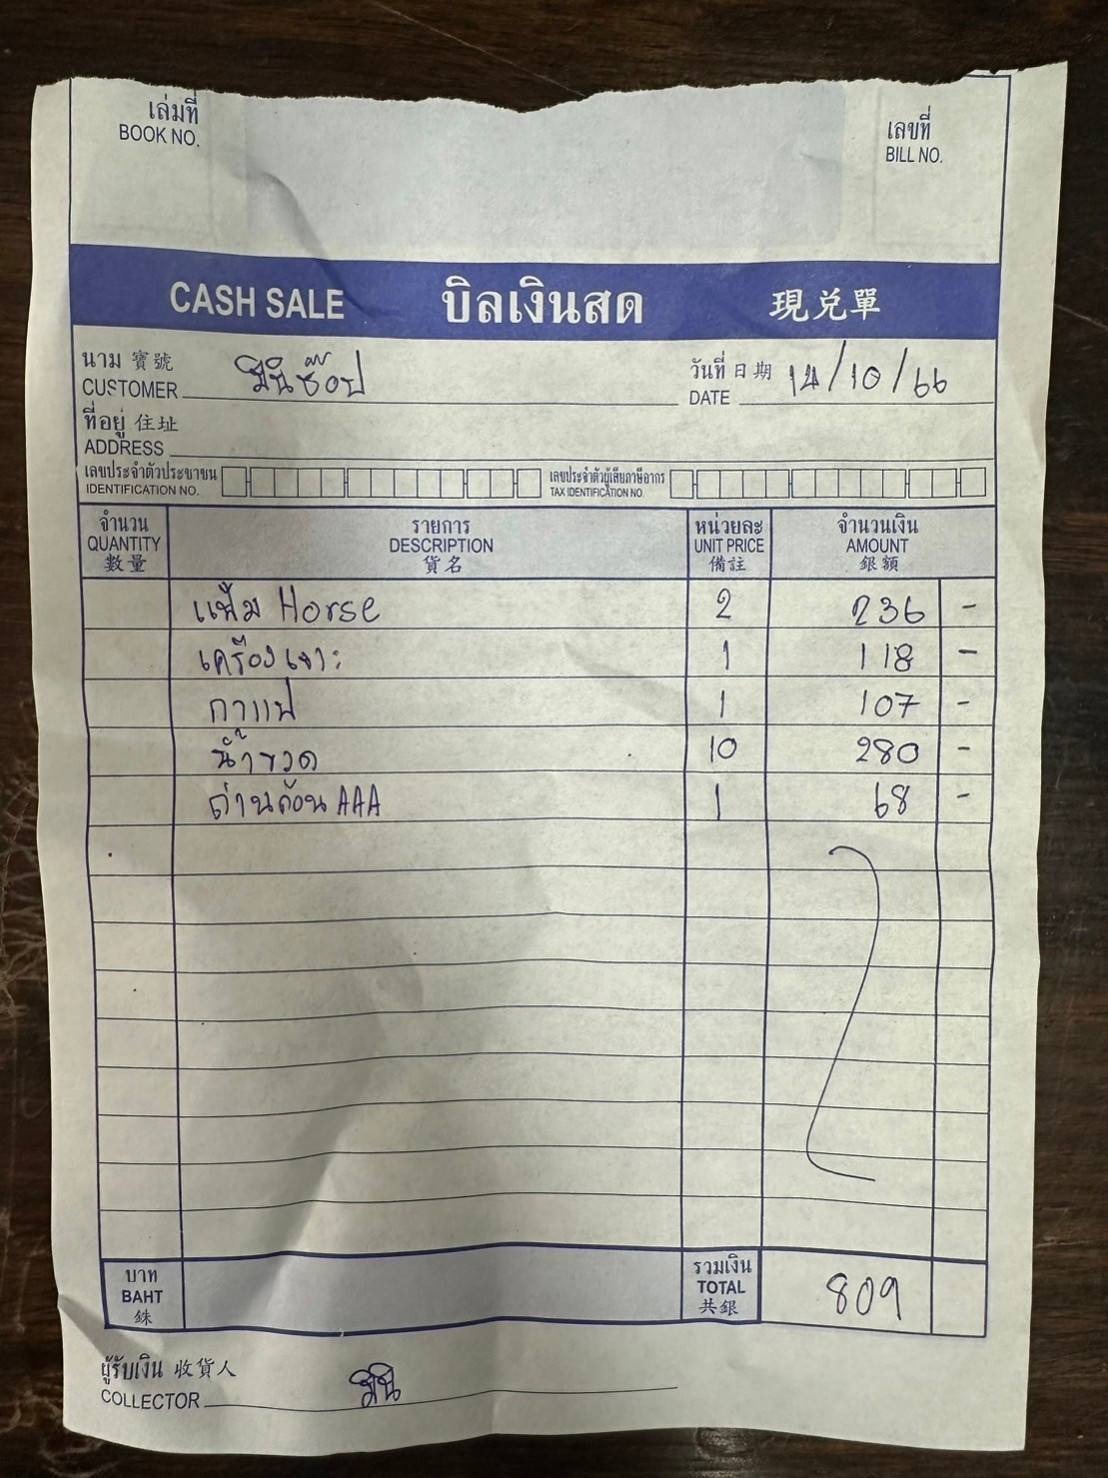 เล่มที่ เลขที่
BOOK NO. BILL NO.
CASH SALE บิลเงินสด 現兑單
นาม 寶號 มินิช๊อป วันที่ 日期 14/10/66
CUSTOMER DATE
ที่อยู่ 住址
ADDRESS
เลขประจำตัวประชาชน เลขประจำตัวผู้เสียภาษีอากร
IDENTIFICATION NO. TAX IDENTIFICATION NO.
จำนวน รายการ หน่วยละ จำนวนเงิน
QUANTITY DESCRIPTION UNIT PRICE AMOUNT
數量 貨名 備註 銀額
แฟ้ม Horse 2 236 -
เครื่องเจาะ 1 118 -
กาแฟ 1 107 -
น้ำขวด 10 280 -
ถ่านก้อน AAA 1 68 -
บาท รวมเงิน
BAHT TOTAL 809
銖 共銀
ผู้รับเงิน 收貨人
COLLECTOR มินิ